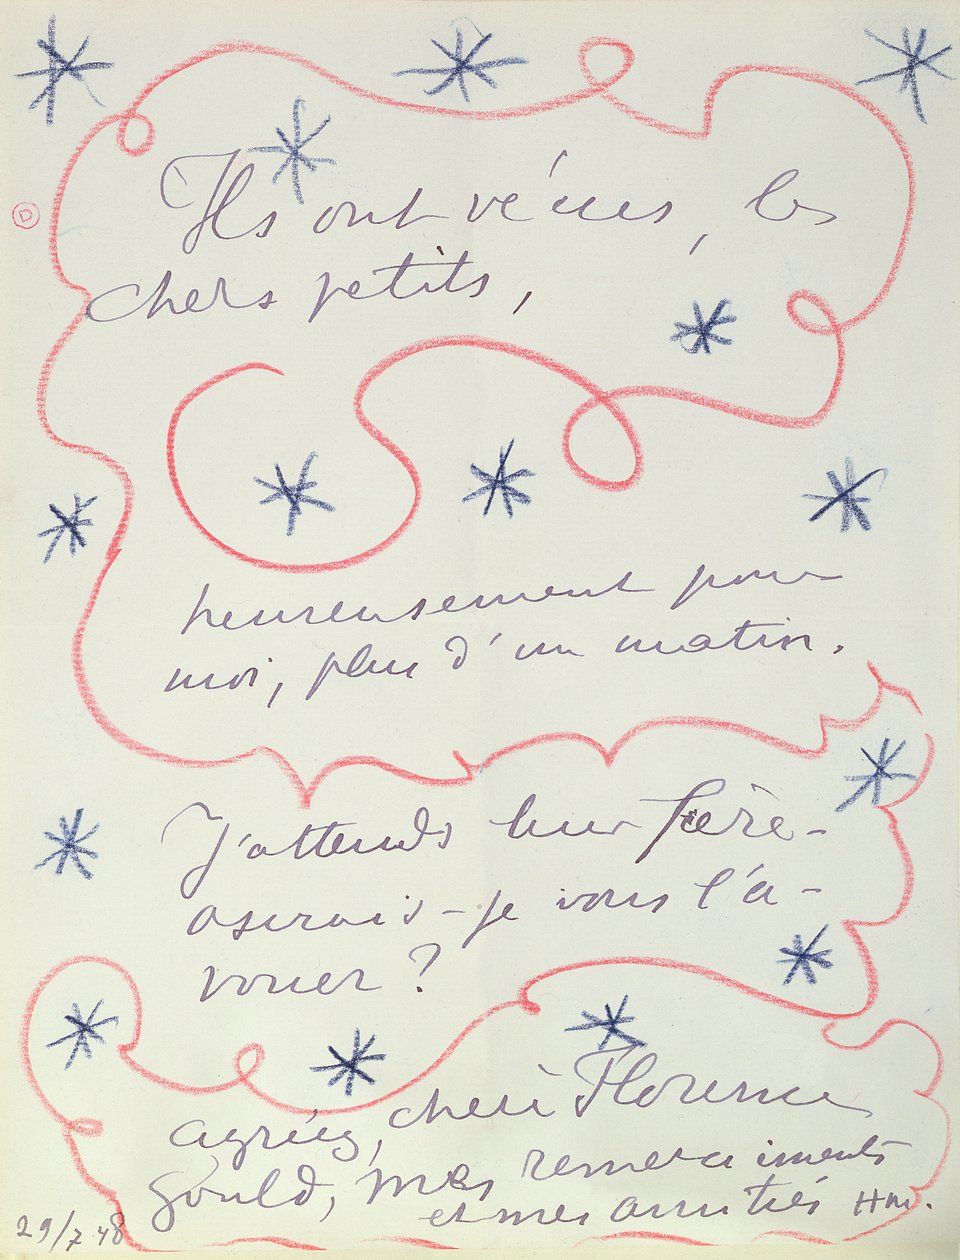 Ils ont vécus, les
chers petits,
D
heureusement pour
moi, plus d'un matin.
J'attends leur frère -
oserais-je vous l'a-
vouer ?
agréez, chère Florence
Gould, mes remerciements
et mes amitiés HM.
29/7 48